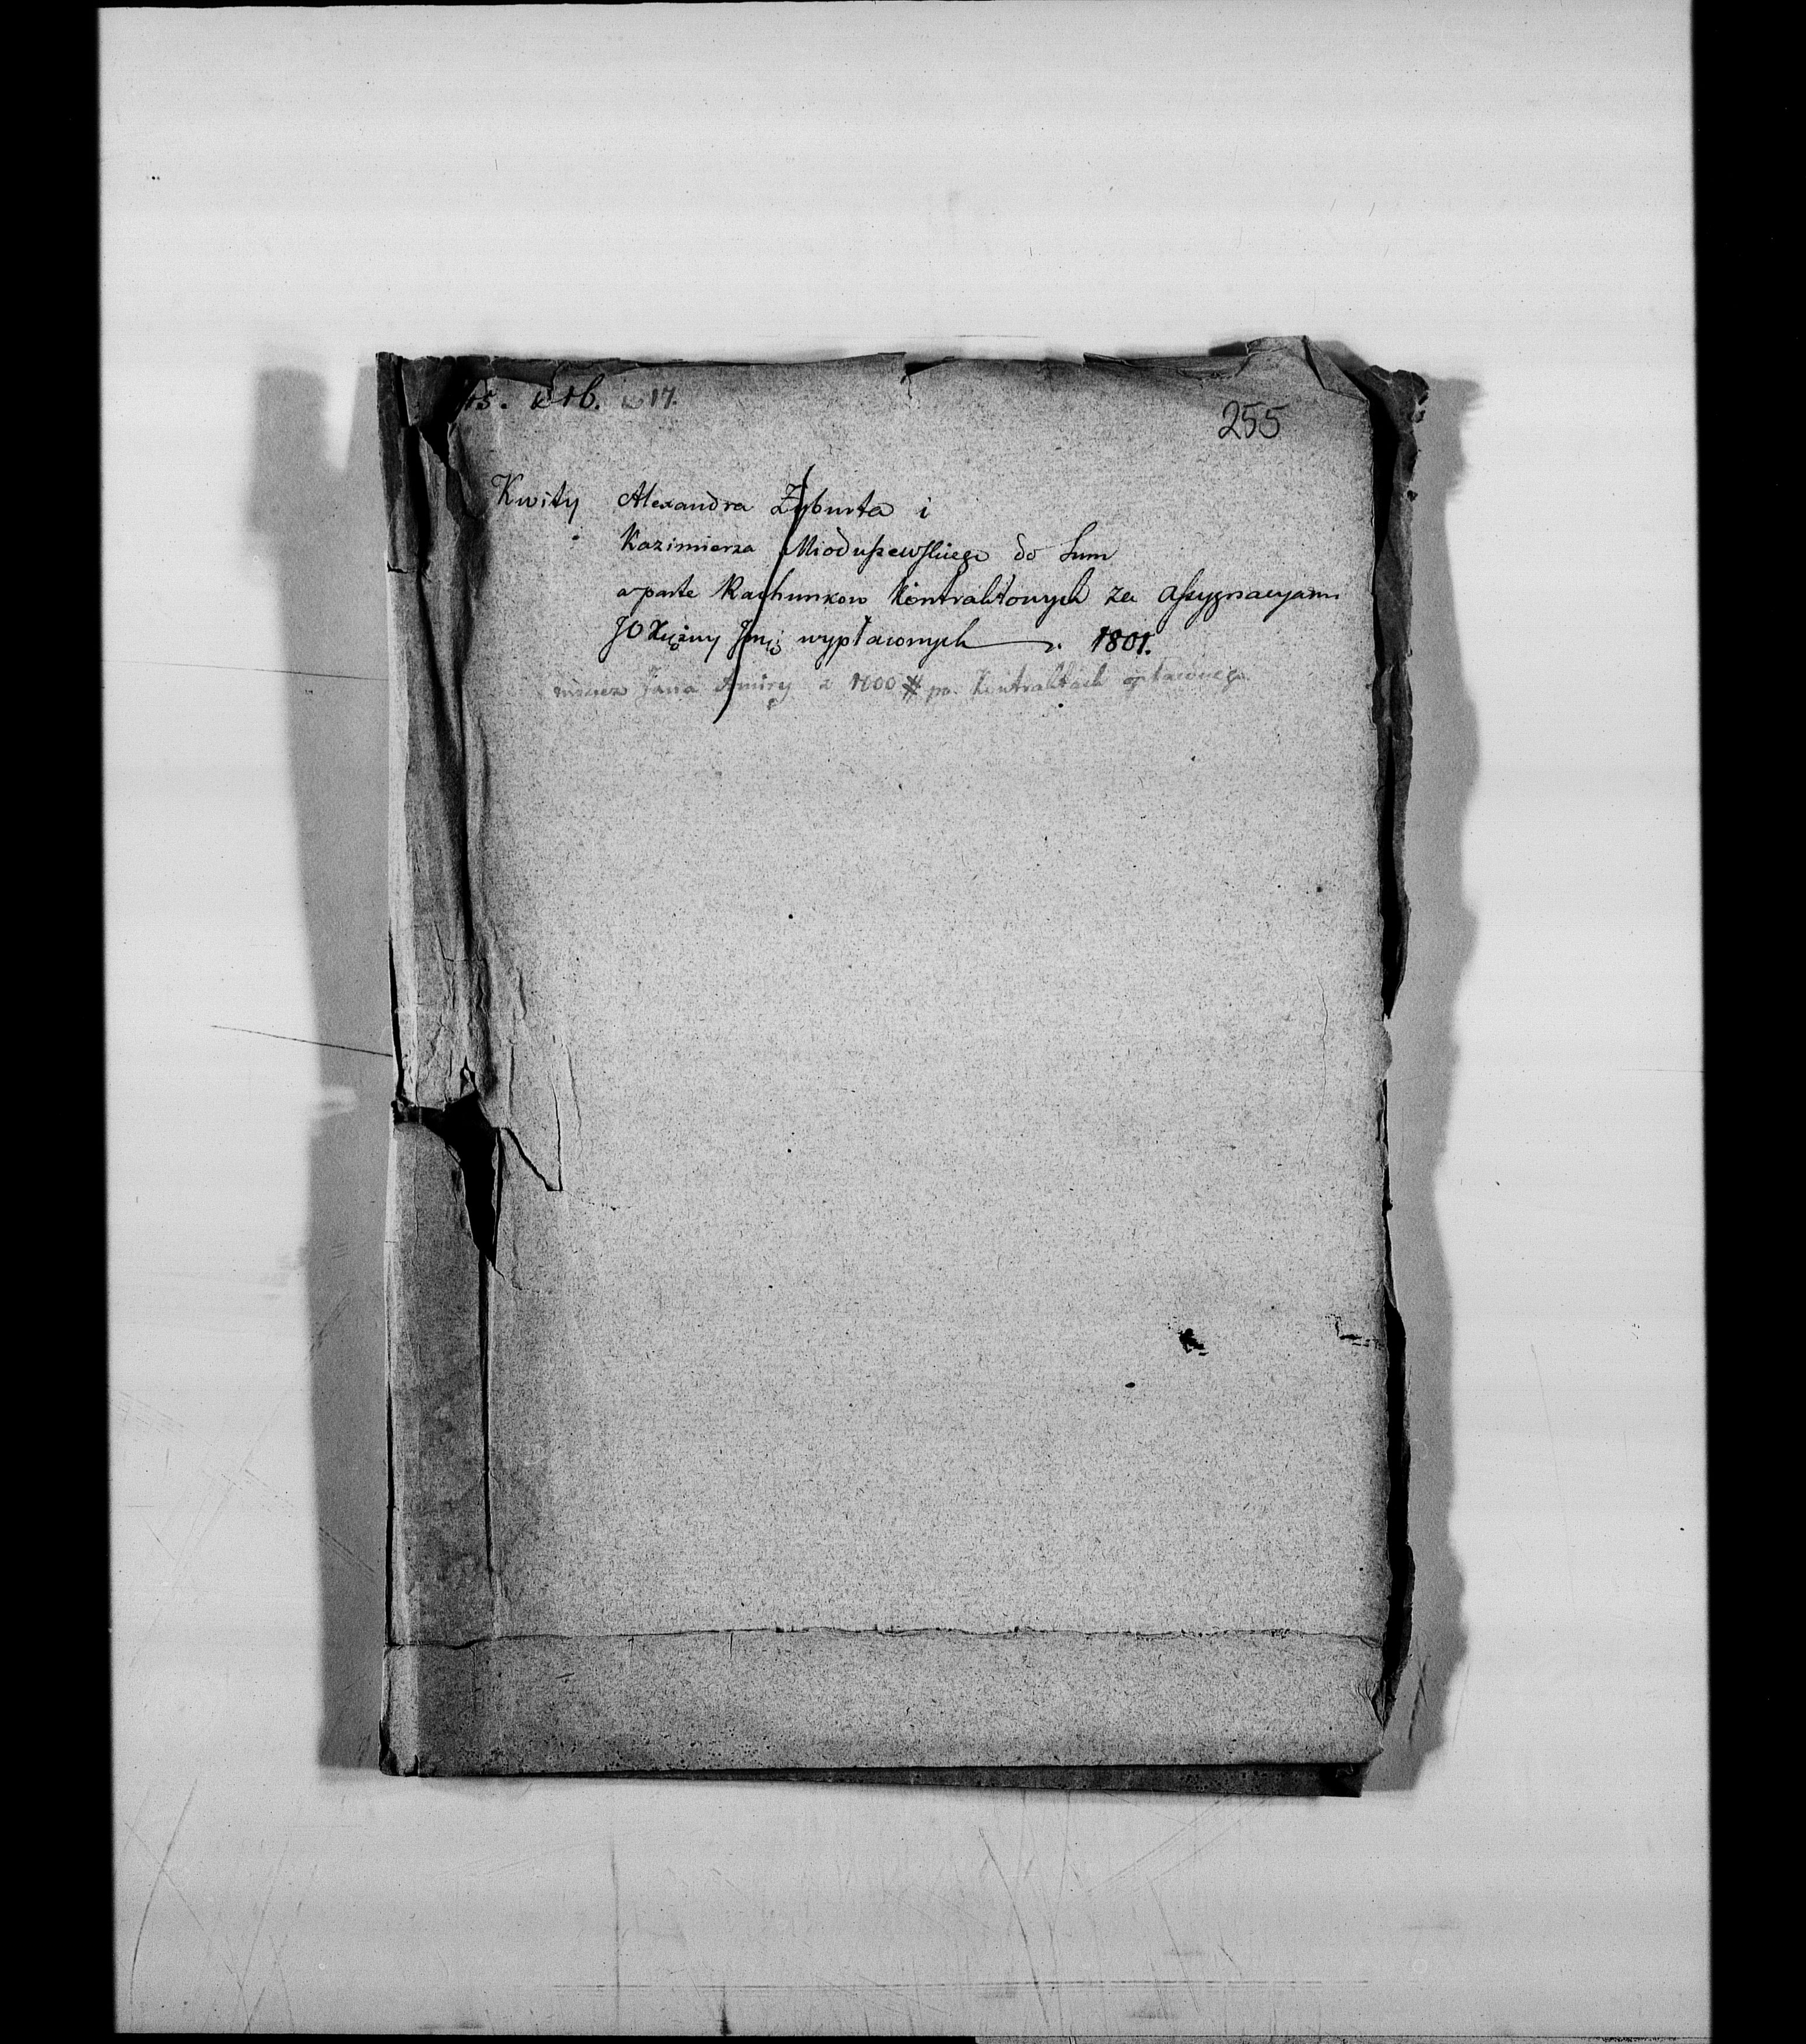 15. et 16. et 17.
255
Kwity Alexandra Zyburta i
Kazimierza Mioduszewskiego do Sum
a parte Rachunkow Kontraktowych za assygnacyami
JO Xiężny Jmci wypłaconych 1801.
Jana a 1000 # po Kontraktach